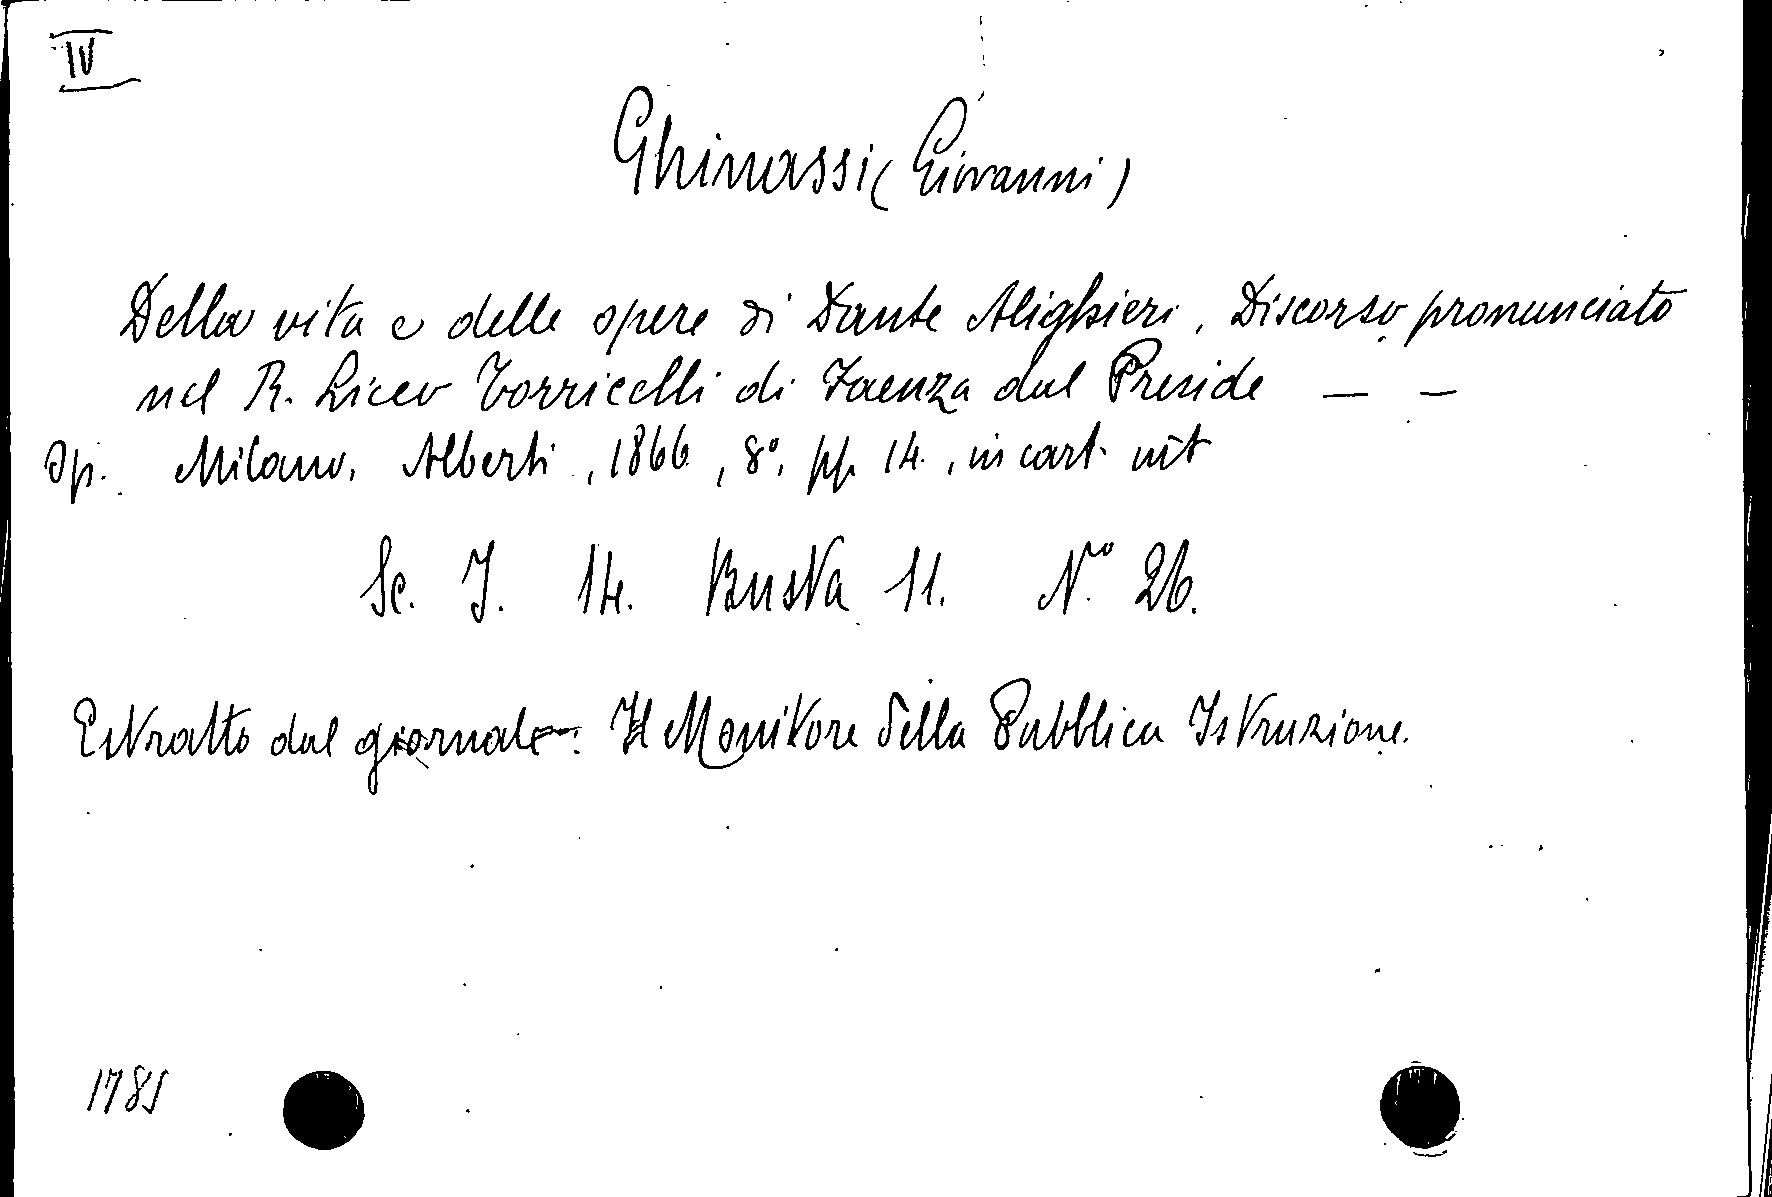 IV
Ghinassi (Giovanni)
Della vita e delle opere di Dante Alighieri. Discorso pronunciato
nel R. Liceo Torricelli di Faenza dal Preside — —
Op. Milano, Alberti, 1866, 8°, pp. 14., in cart.
Sc. I. 14. Busta 11. N.° 26.
Estratto dal giornale: Il Monitore della Pubblica Istruzione.
1785